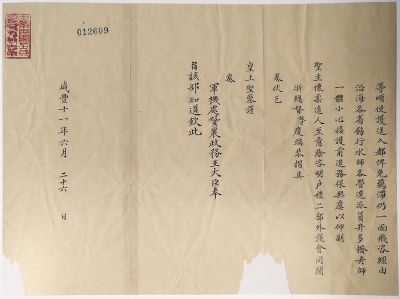 等順便護送入都俾免羈滯仍一面飛咨經由
沿海各省飭行水師各營遴派員弁多撥舟師
一體小心接護前進務保無虞以仰副
聖主懷柔遠人至意除咨明戶禮二部外謹會同閩
浙總督李慶端恭摺具
奏伏乞
皇上聖鑒謹
奏
軍機處贊襄政務王大臣奉
旨該部知道欽此
咸豐十一年六月 二十六 日
012609